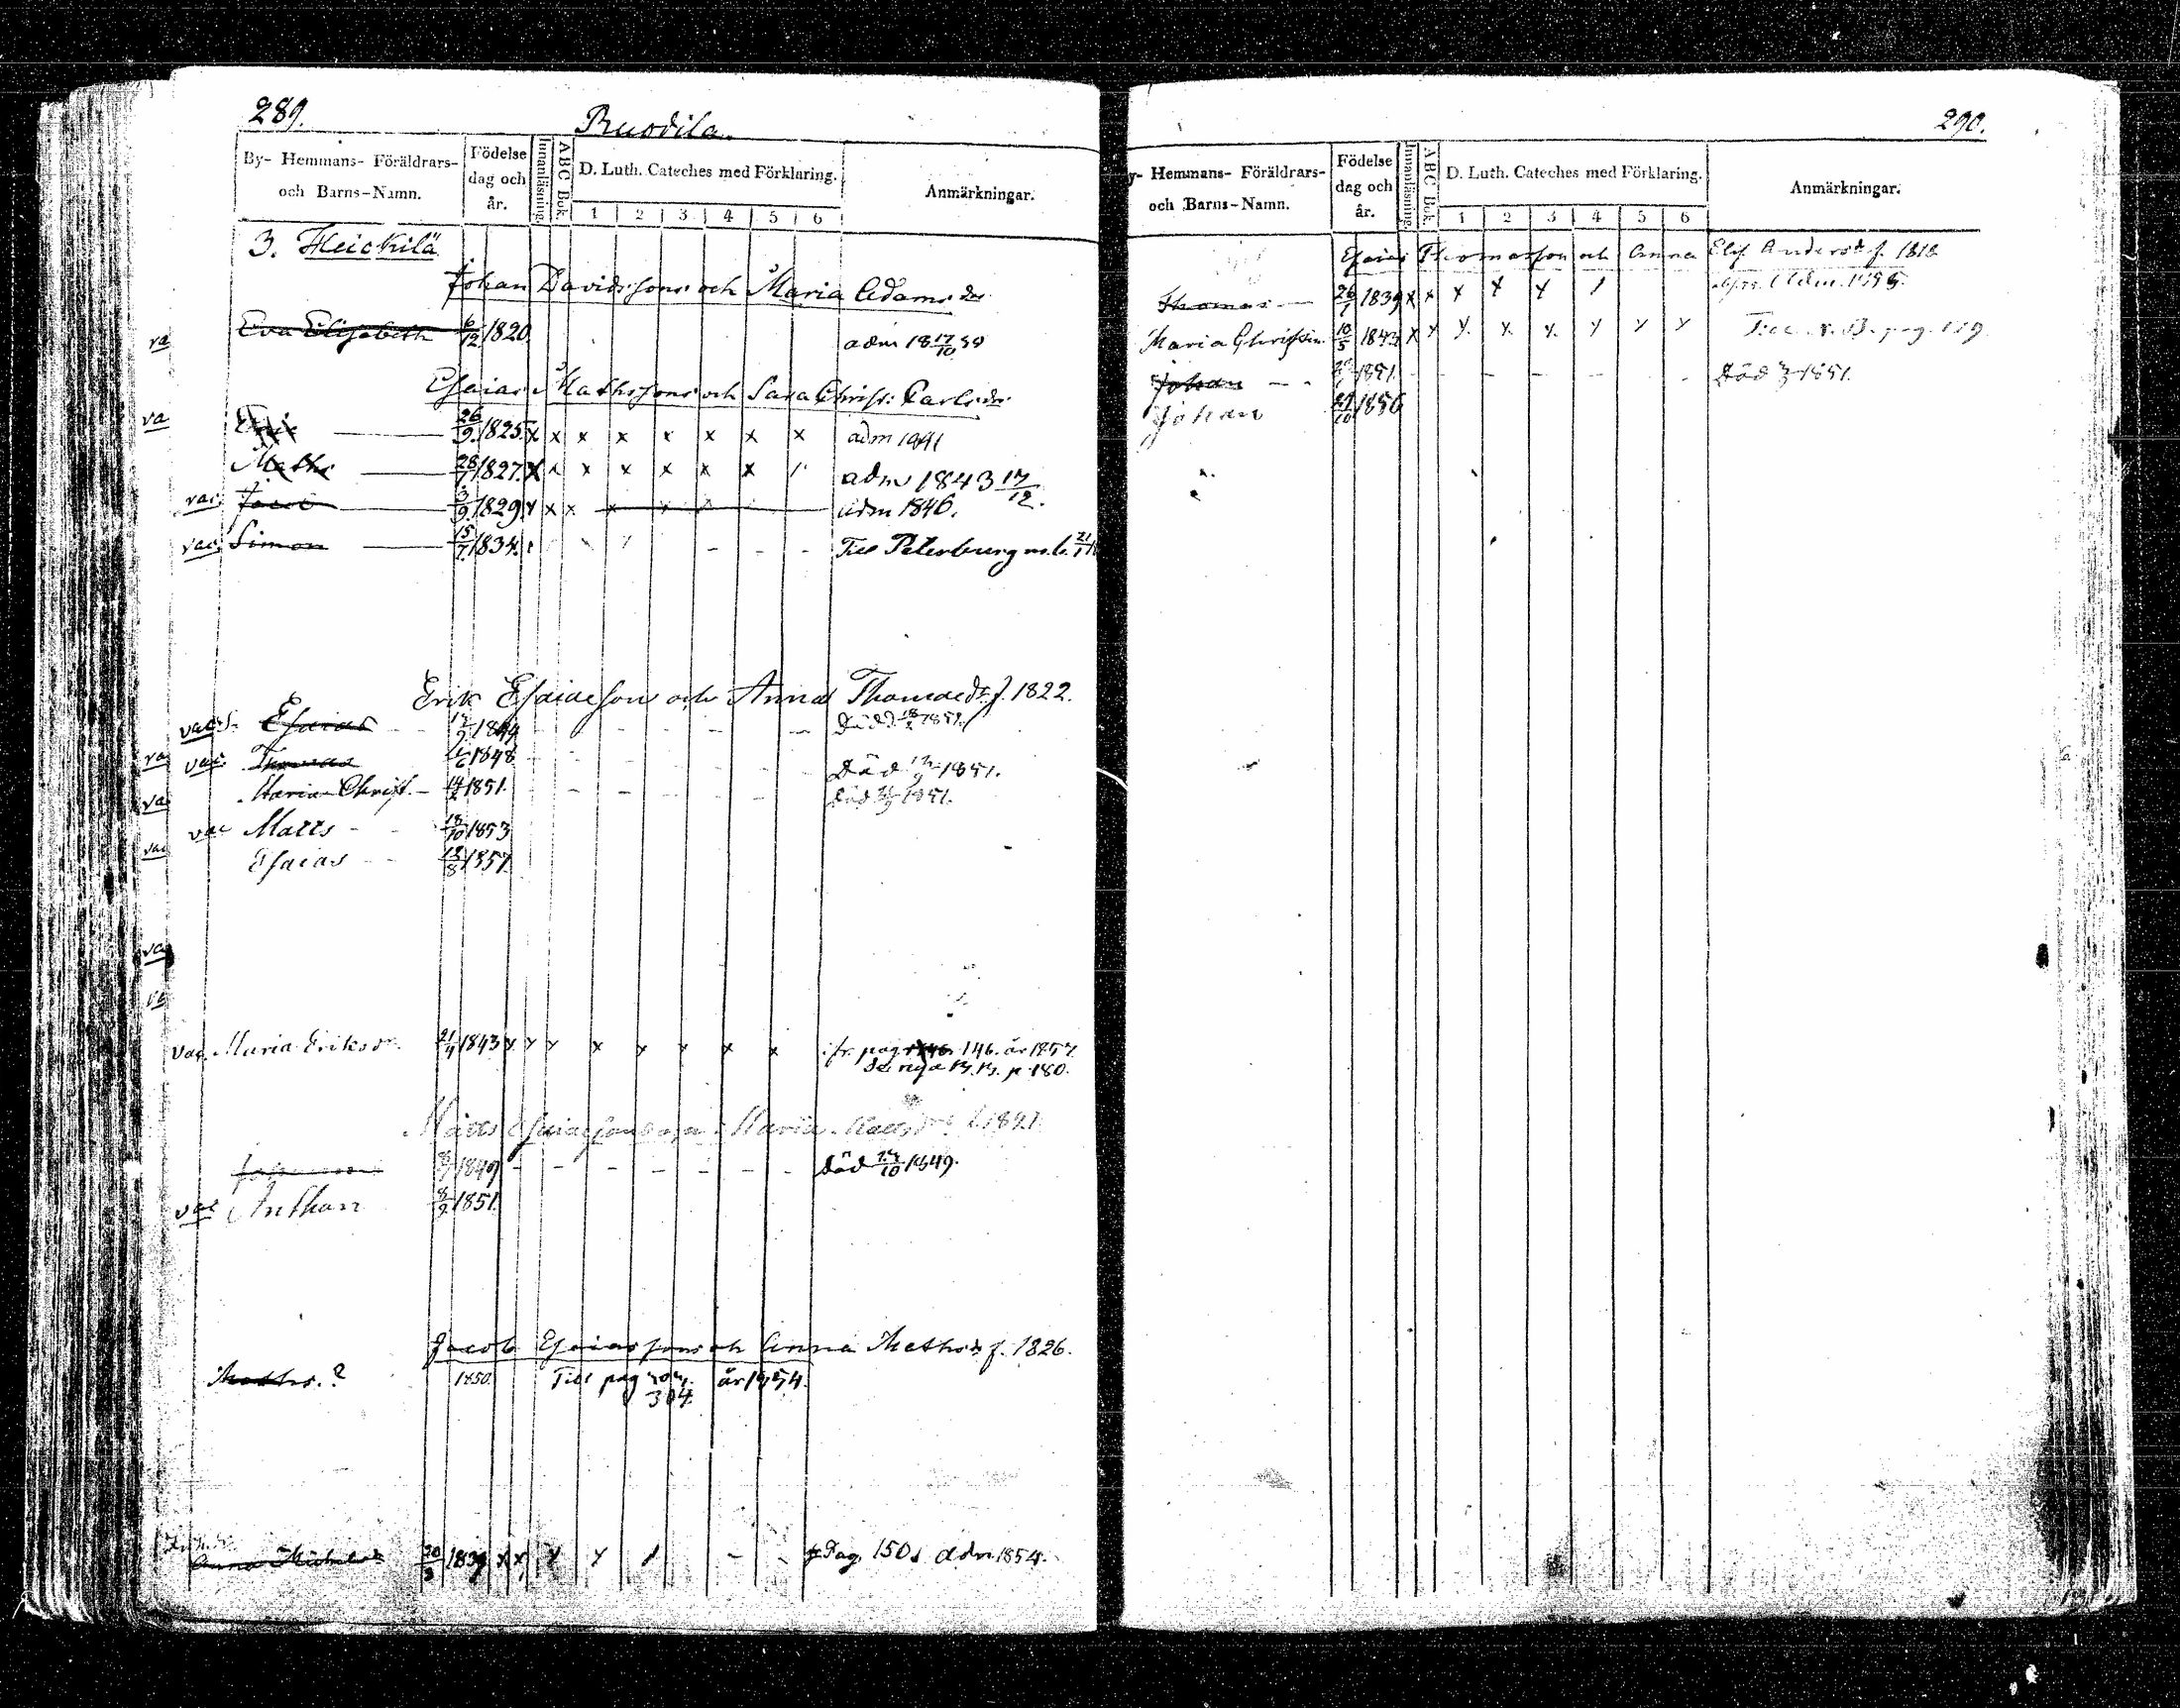 289.
Ruodila.
By- Hemmans- Föräldrars- och Barns-Namn.
Födelse dag och år.
Innanläsning.
ABC Bok.
D. Luth. Cateches med Förklaring.
1 2 3 4 5 6
Anmärkningar.
3. Heickilä
Johan Davidssons och Maria Adams dr
va Eva Elisabeth 6/12 1820. adm 18 17/10
Esaias Mathssons och Sara Christ: Carls dr
va Eric 26/9 1825. x x x x x x x x adm 1841
Maths 28/7 1827. x x x x x x x adm 1843 17/12.
vac. Jacob 3/9 1829. x x x x x x adm 1846.
vac. Simon 15/7 1834. Till Petersburg m. b. 21/1
Erik Esaiasson och Anna Thomasdr f. 1822.
vac. Esaias 1844 Död 1851.
va vac. Thomas 1/6 1848 Död 1851.
va Maria Christ. 14/2 1851. Död 1851.
vac Matts 18/10 1853
vac Esaias 13/8 1857.
va
va
vac. Maria Eriksdr. 21/4 1843 x x x x x x x x fr. pag 146. år 1857.
se nya B.B. p. 180.
Matts Esaiasson och Maria Mattsdr
1849 död 10 1849.
vac Anthon 8/9 1851.
Jacob Esaiassons och Anna Mathsdr f. 1826.
Maths.? 1850. Till pag 304. år 1854.
304.
Anna Michelsdr 20/3 1839 x x x x / Pag. 150. adm. 1854.
290.
By- Hemmans- Föräldrars- och Barns-Namn.
Födelse dag och år.
Innanläsning.
ABC Bok.
D. Luth. Cateches med Förklaring.
1 2 3 4 5 6
Anmärkningar.
Esaias Thomasson och Anna Elis. Andersdr f. 1818
Thomas 26/7 1839 x x x x x / Adm.
Maria Christin. 10/5 1843 x x x x x x x x Till N. B. pag.
Johan 1851. Död 1851.
Johan 27/10 1856